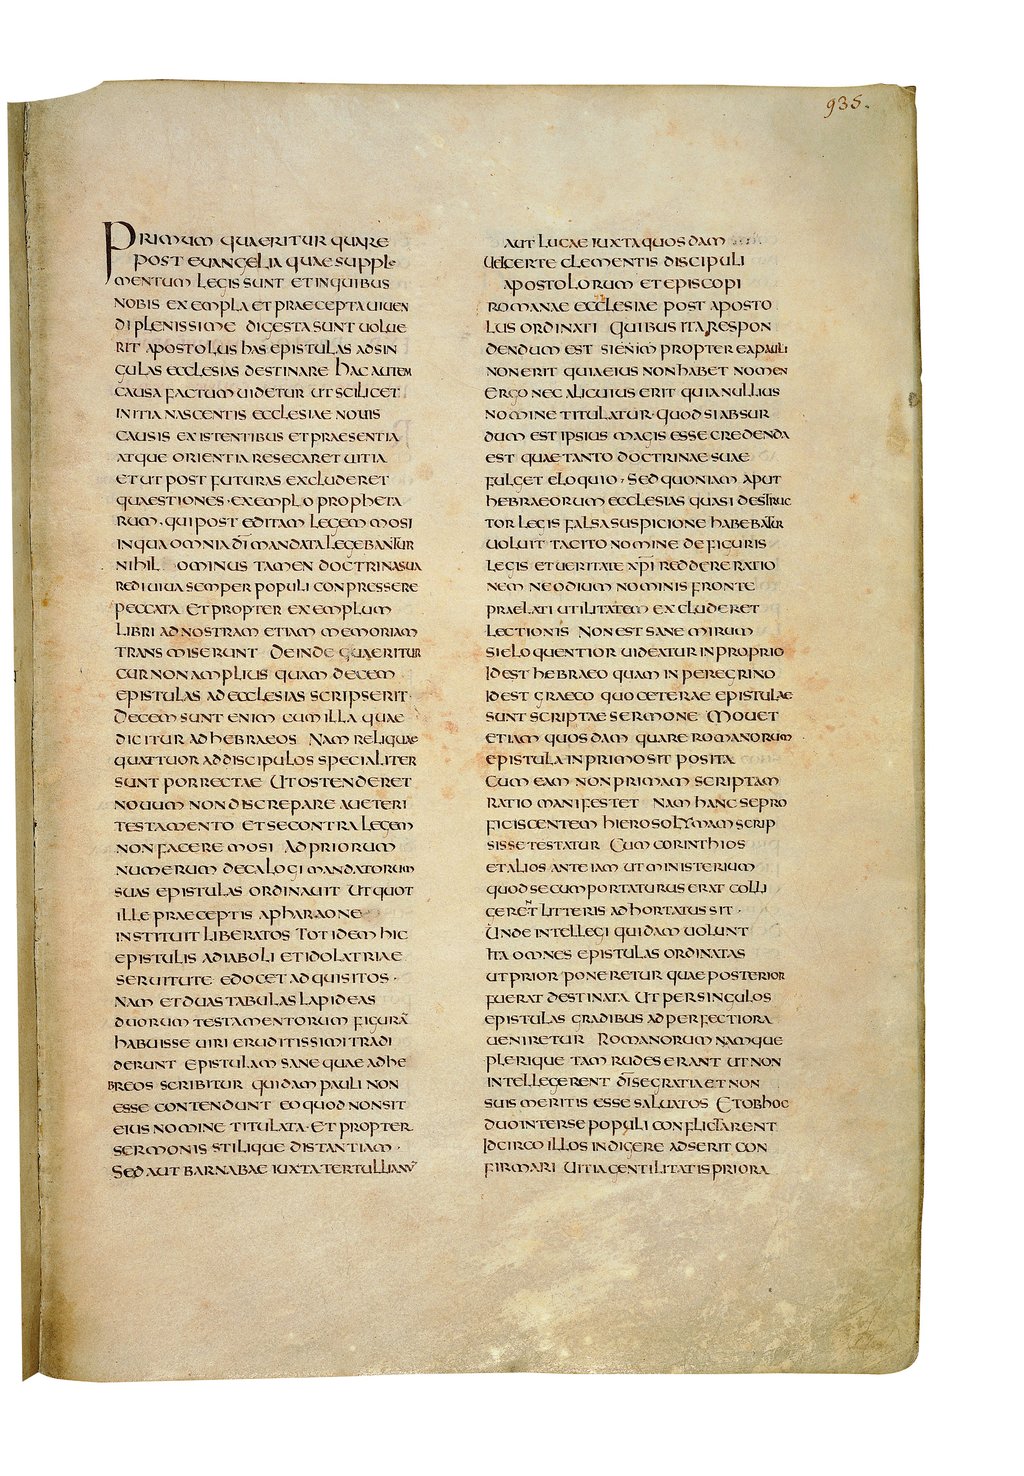 935.
PRIMUM QUAERITUR QUARE
POST EUANGELIA QUAE SUPPLE
MENTUM LEGIS SUNT ET IN QUIBUS
NOBIS EXEMPLA ET PRAECEPTA UIUEN
DI PLENISSIME DIGESTA SUNT UOLUE
RIT APOSTOLUS HAS EPISTULAS AD SIN
GULAS ECCLESIAS DESTINARE HAC AUTEM
CAUSA FACTUM UIDETUR UT SCILICET
INITIA NASCENTIS ECCLESIAE NOUIS
CAUSIS EXISTENTIBUS ET PRAESENTIA
ATQUE ORIENTIA RESECARET UITIA
ET UT POST FUTURAS EXCLUDERET
QUAESTIONES · EXEMPLO PROPHETA
RUM · QUI POST EDITAM LEGEM MOSI
IN QUA OMNIA DĪ MANDATA LEGEBANTUR
NIHIL OMINUS TAMEN DOCTRINA SUA
REDIUIUA SEMPER POPULI CONPRESSERE
PECCATA ET PROPTER EXEMPLUM
LIBRI AD NOSTRAM ETIAM MEMORIAM
TRANSMISERUNT DEINDE QUAERITUR
CUR NON AMPLIUS QUAM DECEM
EPISTULAS AD ECCLESIAS SCRIPSERIT ·
DECEM SUNT ENIM CUM ILLA QUAE
DICITUR AD HEBRAEOS NAM RELIQUAE
QUATTUOR AD DISCIPULOS SPECIALITER
SUNT PORRECTAE UT OSTENDERET
NOUUM NON DISCREPARE A UETERI
TESTAMENTO ET SE CONTRA LEGEM
NON FACERE MOSI AD PRIORUM
NUMERUM DECALOGI MANDATORUM
SUAS EPISTULAS ORDINAUIT UT QUOT
ILLE PRAECEPTIS A PHARAONE
INSTITUIT LIBERATOS TOTIDEM HIC
EPISTULIS A DIABOLI ET IDOLATRIAE
SERUITUTE EDOCET ADQUISITOS ·
NAM ET DUAS TABULAS LAPIDEAS
DUORUM TESTAMENTORUM FIGURĀ
HABUISSE UIRI ERUDITISSIMI TRADI
DERUNT EPISTULAM SANE QUAE AD HE
BREOS SCRIBITUR QUIDAM PAULI NON
ESSE CONTENDUNT EO QUOD NON SIT
EIUS NOMINE TITULATA · ET PROPTER
SERMONIS STILIQUE DISTANTIAM ·
SED AUT BARNABAE IUXTA TERTULLIANŪ
AUT LUCAE IUXTA QUOSDAM
UEL CERTE CLEMENTIS DISCIPULI
APOSTOLORUM ET EPISCOPI
ROMANAE ECCLESIAE POST APOSTO
LUS ORDINATI QUIBUS ITA RESPON
DENDUM EST SI ENIM PROPTEREA PAULI
NON ERIT QUIA EIUS NON HABET NOMEN
ERGO NEC ALICUIUS ERIT QUIA NULLIUS
NOMINE TITULATUR · QUOD SI ABSUR
DUM EST IPSIUS MAGIS ESSE CREDENDA
EST QUAE TANTO DOCTRINAE SUAE
FULGET ELOQUIO · SED QUONIAM APUT
HEBRAEORUM ECCLESIAS QUASI DESTRUC
TOR LEGIS FALSA SUSPICIONE HABEBATUR
UOLUIT TACITO NOMINE DE FIGURIS
LEGIS ET UERITATE XPĪ REDDERE RATIO
NEM NE ODIUM NOMINIS FRONTE
PRAELATI UTILITATEM EXCLUDERET
LECTIONIS NON EST SANE MIRUM
SI ELOQUENTIOR UIDEATUR IN PROPRIO
ID EST HEBRAEO QUAM IN PEREGRINO
ID EST GRAECO QUO CETERAE EPISTULAE
SUNT SCRIPTAE SERMONE MOUET
ETIAM QUOSDAM QUARE ROMANORUM
EPISTULA IN PRIMO SIT POSITA
CUM EAM NON PRIMAM SCRIPTAM
RATIO MANIFESTET NAM HANC SE PRO
FICISCENTEM HIEROSOLYMAM SCRIP
SISSE TESTATUR CUM CORINTHIOS
ET ALIOS ANTE IAM UT MINISTERIUM
QUOD SECUM PORTATURUS ERAT COLLI
GERENT LITTERIS ADHORTATUS SIT ·
UNDE INTELLEGI QUIDAM UOLUNT
ITA OMNES EPISTULAS ORDINATAS
UT PRIOR PONERETUR QUAE POSTERIOR
FUERAT DESTINATA UT PER SINGULOS
EPISTULAS GRADIBUS AD PERFECTIORA
UENIRETUR ROMANORUM NAMQUE
PLERIQUE TAM RUDES ERANT UT NON
INTELLEGERENT DĪ SE GRATIA ET NON
SUIS MERITIS ESSE SALUATOS ET OB HOC
DUO INTER SE POPULI CONFLICTARENT
IDCIRCO ILLOS INDIGERE ADSERIT CON
FIRMARI UITIA GENTILITATIS PRIORA